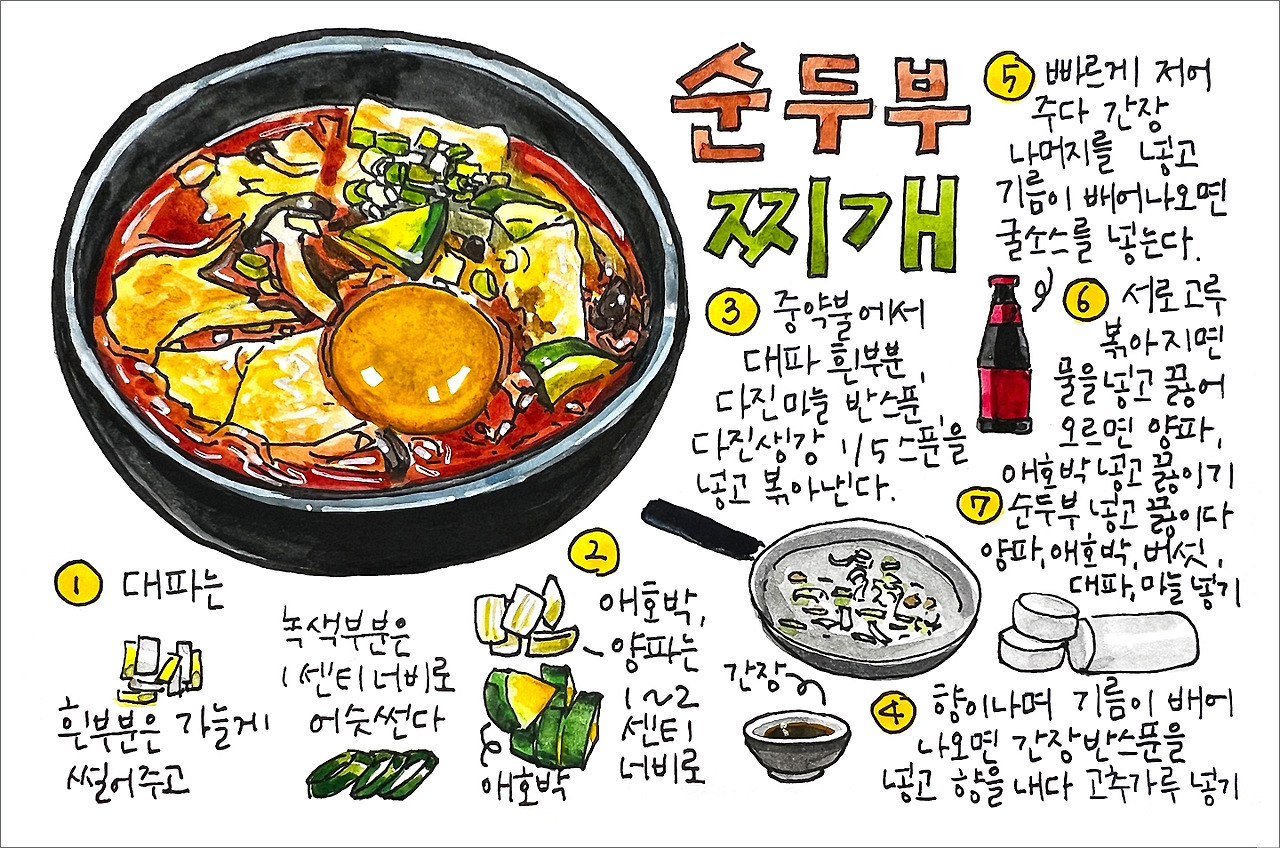 순두부
찌개
① 대파는
흰부분은 가늘게
썰어주고
녹색부분은
1센티너비로
어슷썬다
②
애호박,
양파는
1~2
센티
너비로
애호박
③ 중약불에서
대파 흰부분,
다진마늘 반스푼,
다진생강 1/5스푼을
넣고 볶아낸다.
간장
④ 향이나며 기름이 배어
나오면 간장반스푼을
넣고 향을 내다 고추가루 넣기
⑤ 빠르게 저어
주다 간장
나머지를 넣고
기름이 빼어나오면
굴소스를 넣는다.
⑥ 서로고루
볶아지면
물을넣고 끓어
오르면 양파,
애호박넣고 끓이기
⑦ 순두부 넣고 끓이다
양파,애호박,버섯,
대파,마늘넣기